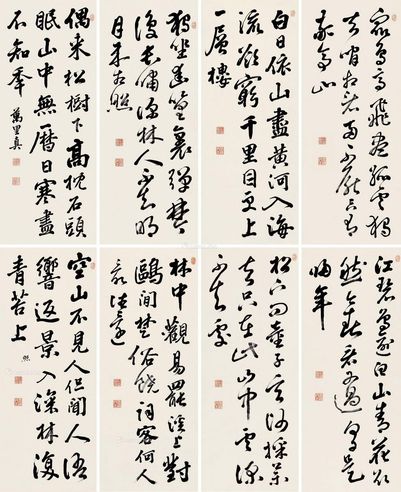 眾鳥高飛盡孤雲獨
去閒相看兩不厭只有
敬亭山
白日依山盡黃河入海
流欲窮千里目更上
一層樓
獨坐幽篁裏彈琴
復長嘯深林人不知明
月來相照
偶來松樹下高枕石頭
眠山中無曆日寒盡
不知年
江碧鳥逾白山青花欲
然今春看又過何日是
歸年
松下問童子言師採藥
去只在此山中雲深
不知處
林中觀易罷溪上對
鷗閒楚俗饒詞客何人
最往還
空山不見人但聞人語
響返景入深林復
青苔上 照